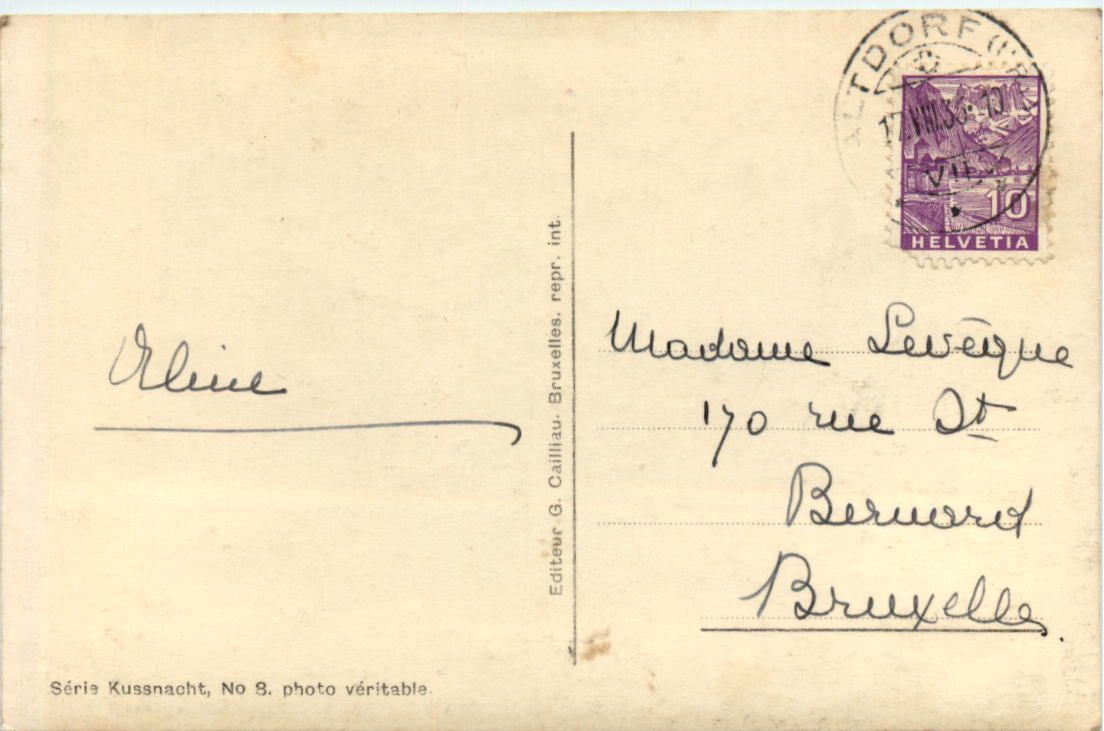 ALTDORF (URI)
17.VIII.36.-10
VII
10
HELVETIA
Aline
Madame Levêque
170 rue St
Bernard
Bruxelles.
Editeur G. Cailliau. Bruxelles, repr. int.
Série Kussnacht, No 8. photo véritable.